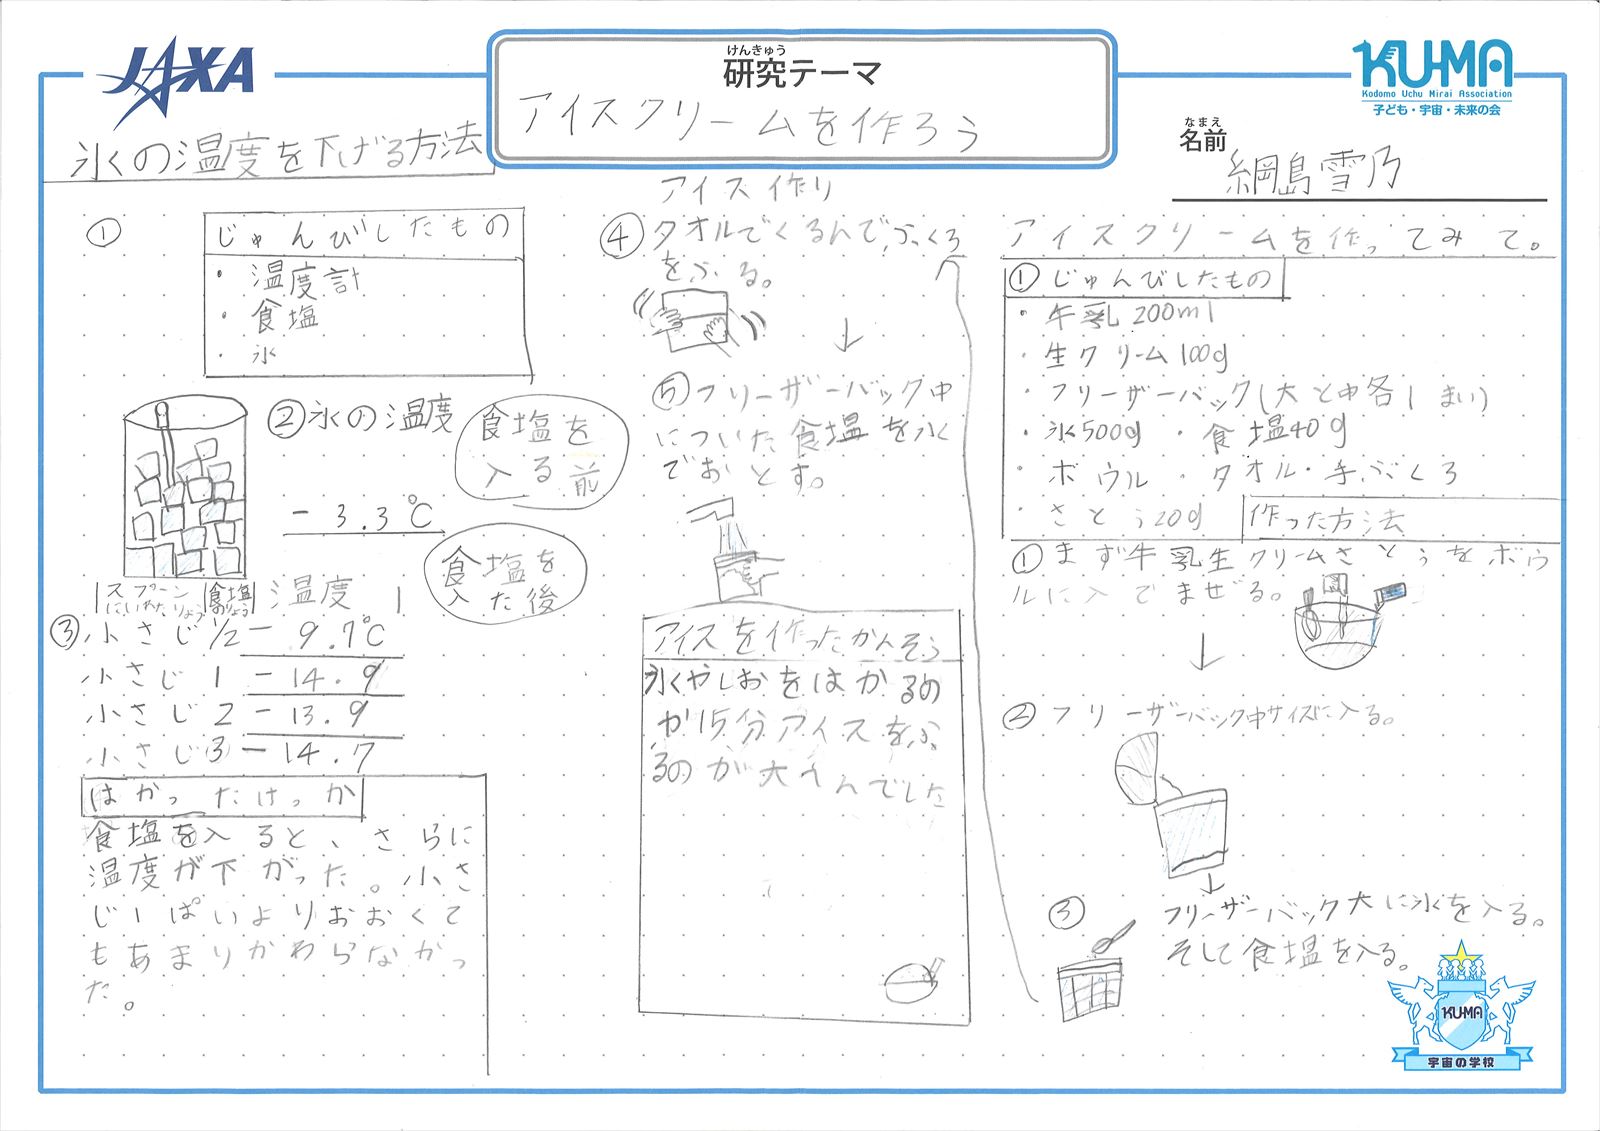 JAXA
けんきゅう
研究テーマ
アイスクリームを作ろう
KU-MA
Kodomo Uchu Mirai Association
子ども・宇宙・未来の会
なまえ
名前
綱島雪乃
氷の温度を下げる方法
①
じゅんびしたもの
・温度計
・食塩
・氷
②氷の温度
食塩を
入る前
-3.3℃
食塩を
入た後
スプーン
にいれたりょう
食塩
のりょう
温度
③小さじ1/2 -9.7℃
小さじ1 -14.9
小さじ2 -13.9
小さじ3 -14.7
はかったけっか
食塩を入ると、さらに
温度が下がった。小さ
じ1ぱいよりおおくて
もあまりかわらなかっ
た。
アイスクリームを作ってみて。
①じゅんびしたもの
・牛乳200ml
・生クリーム100g
・フリーザーバック(大と中各1まい)
・氷500g ・食塩40g
・ボウル ・タオル・手ぶくろ
・さとう20g
作った方法
①まず牛乳生クリームさとうをボウ
ルに入でまぜる。
②フリーザーバック中サイズに入る。
③フリーザーバック大に氷を入る。
そして食塩を入る。
アイス作り
④タオルでくるんで、ふくろ
をふる。
⑤フリーザーバック中
についた食塩を氷
でおとす。
アイスを作ったかんそう
氷やしおをはかるの
が15分アイスをふ
るのが大へんでした
KU-MA
宇宙の学校